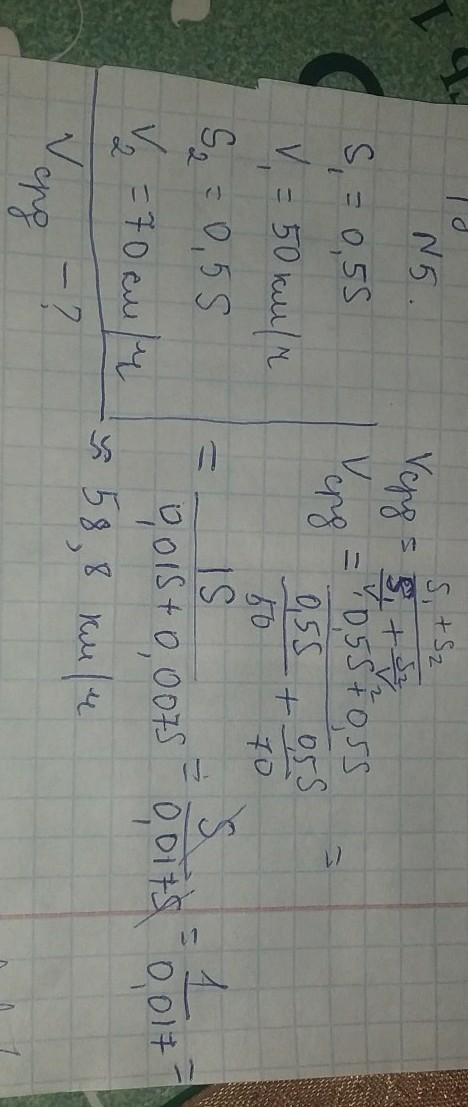 N5.
S₁ = 0,5S
V₁ = 50 км/ч
S₂ = 0,5S
V₂ = 70 км/ч
Vсрд - ?
Vсрд = (S₁ + S₂) / (S₁/V₁ + S₂/V₂)
Vсрд = (0,5S + 0,5S) / (0,5S/50 + 0,5S/70) =
= 1S / (0,01S + 0,007S) = S / 0,017S = 1 / 0,017 =
≈ 58,8 км/ч